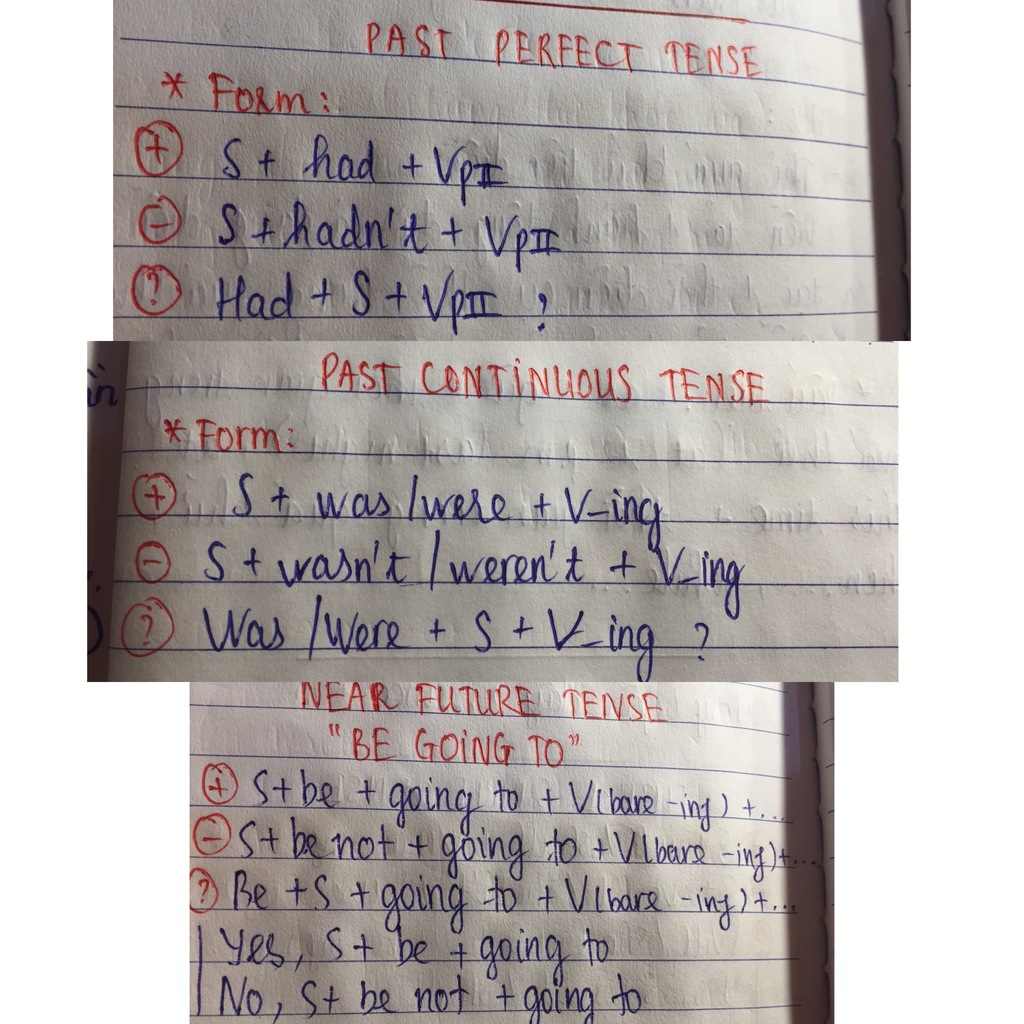 PAST PERFECT TENSE
* Form:
+ S + had + VpII
- S + hadn't + VpII
? Had + S + VpII ?
in
PAST CONTINUOUS TENSE
* Form:
+ S + was /were + V-ing
- S + wasn't / weren't + V-ing
? Was /Were + S + V-ing ?
NEAR FUTURE TENSE
"BE GOING TO"
+ S + be + going to + V(bare -inf) +...
- S + be not + going to + V(bare -inf)+...
? Be + S + going to + V(bare -inf) +...
Yes, S + be + going to
No, S + be not + going to